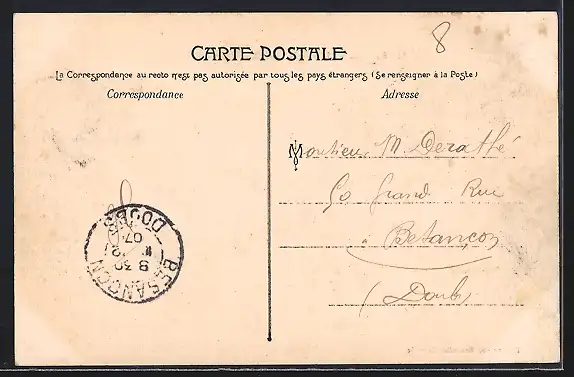 8
CARTE POSTALE
La Correspondance au recto n'est pas autorisée par tous les pays étrangers (Se renseigner à la Poste)
Correspondance
Adresse
Monsieur M. Derathé
60 Grand Rue
à Besançon
(Doubs)
BESANÇON
8 30
07
DOUBS